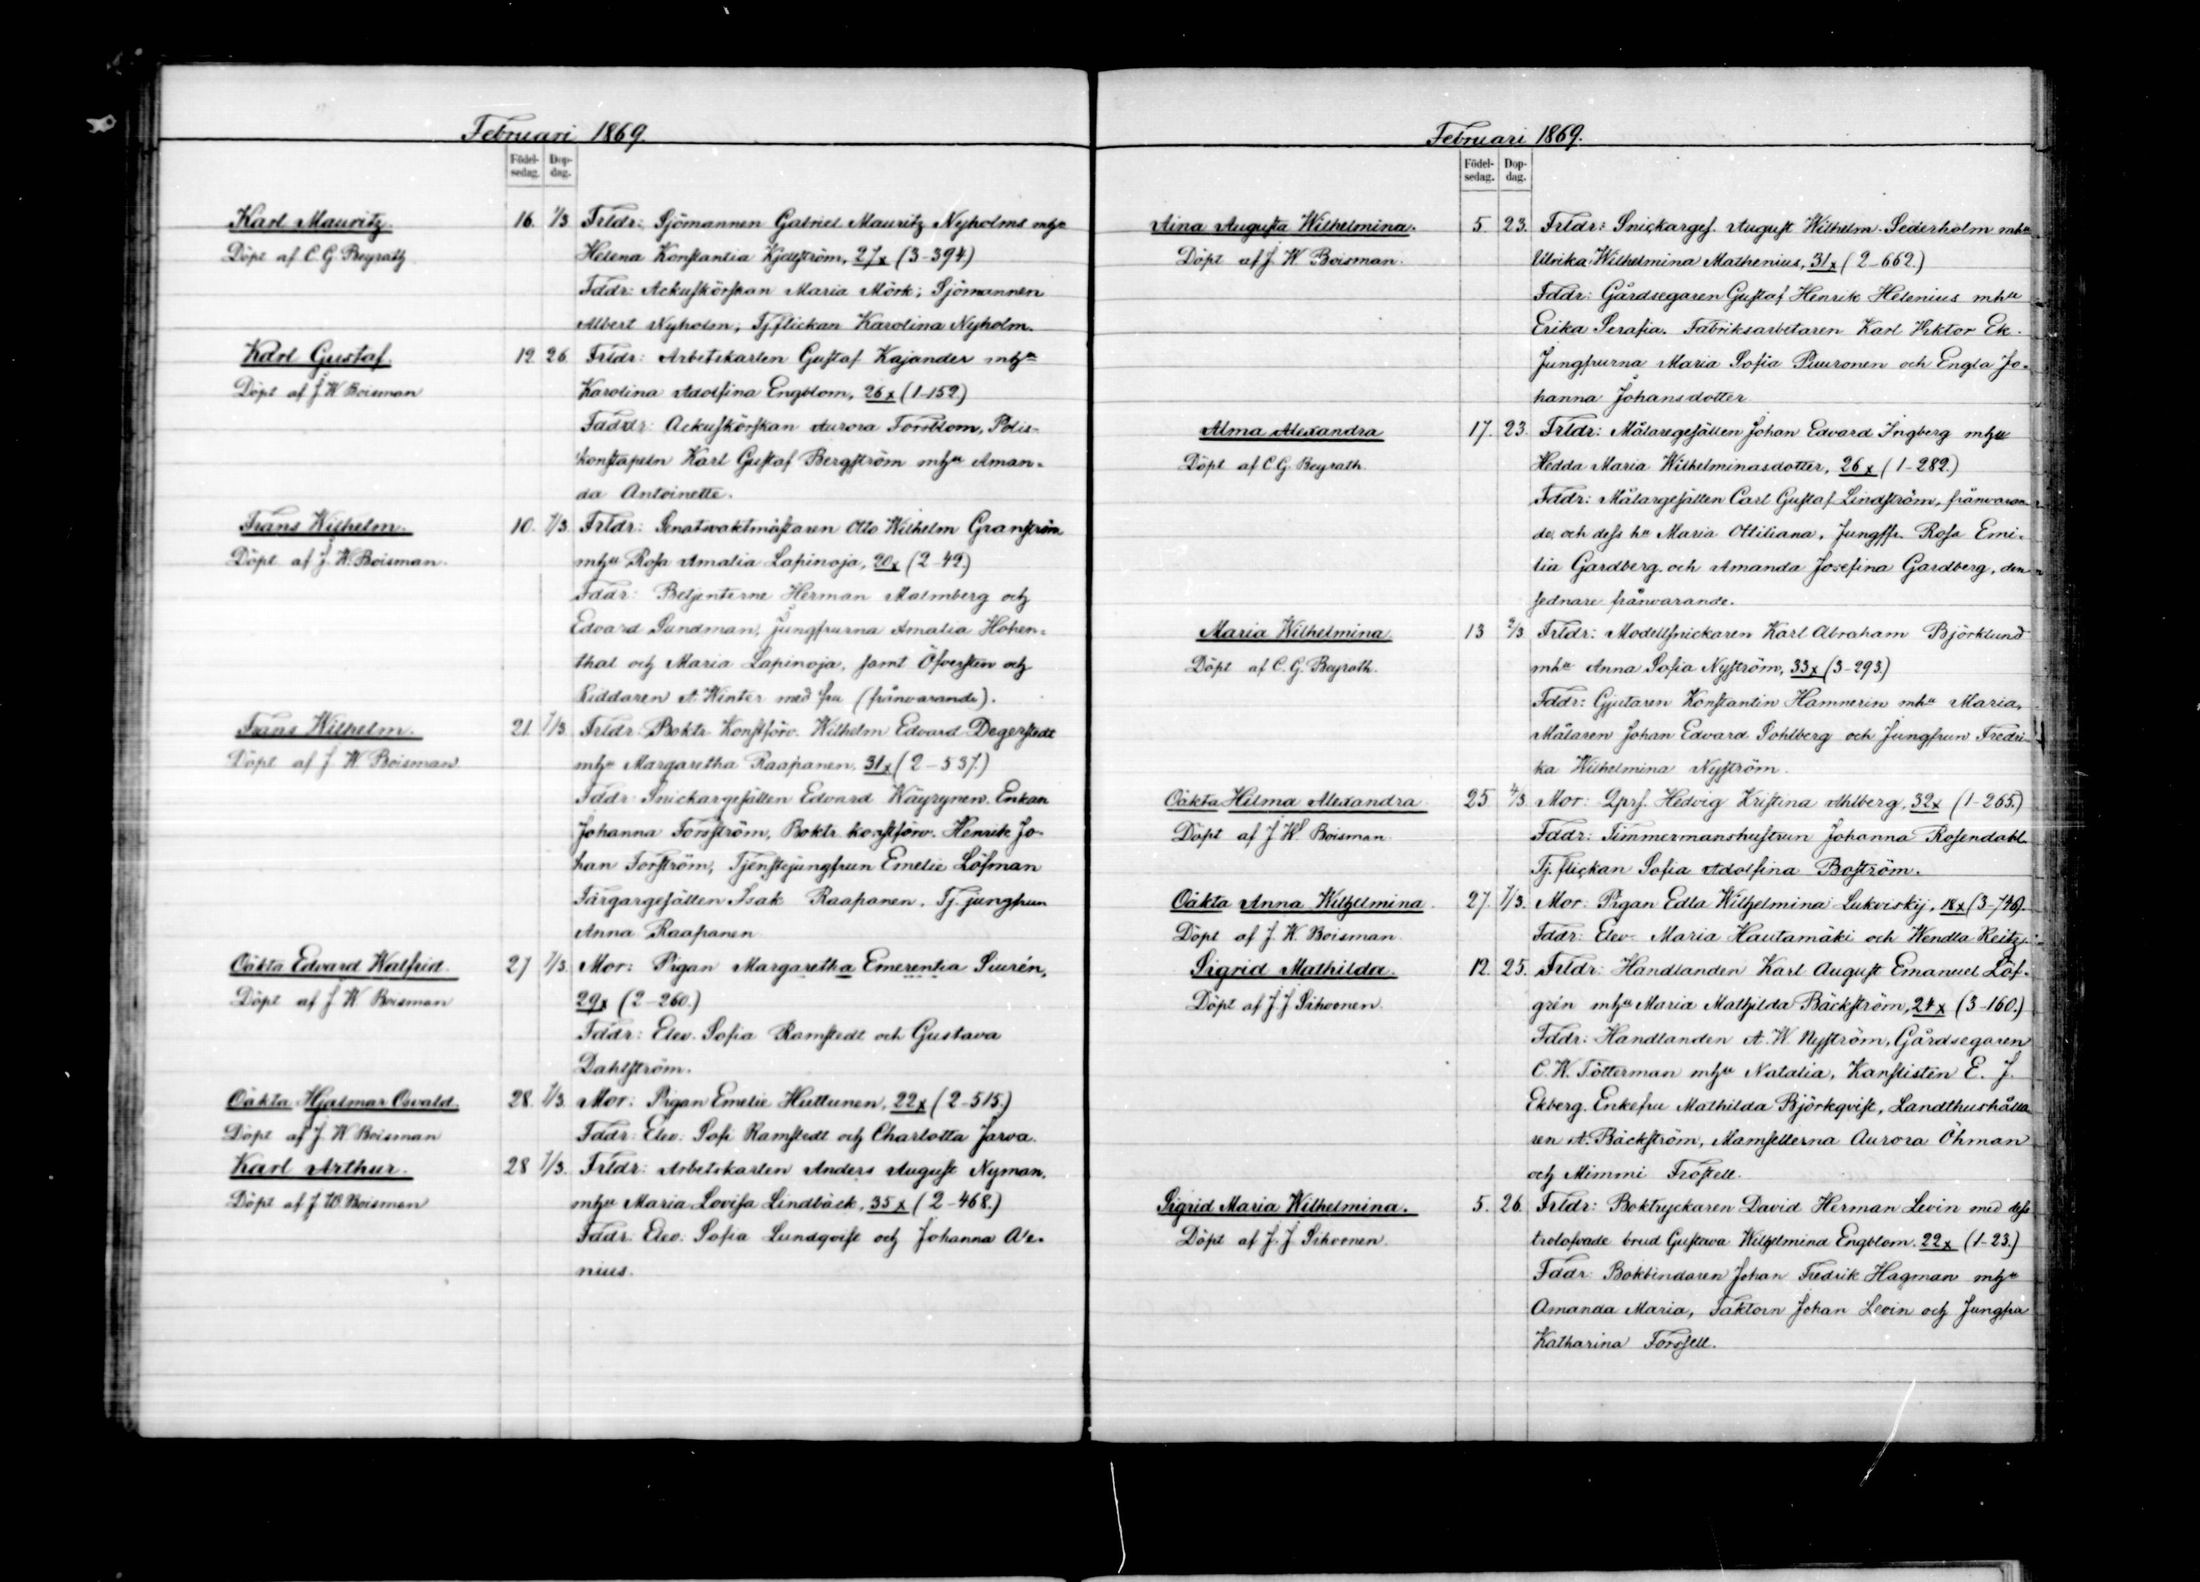 Februari 1869.
Födel- Dop-
sedag. dag.
Karl Mauritz. 16. 1/3 Frldr: Sjömannen Gabriel Mauritz Nyholms mhu
Döpt af C. G. Beyrath Helena Konstantia Kjellström, 27x (3-394)
Fddr: Ackuskörskan Maria Mörk; Sjömannen
Albert Nyholm, Tj.flickan Karolina Nyholm.
Karl Gustaf. 12 26. Frldr: Arbetskarlen Gustaf Kajander mhu
Döpt af J. W. Boisman Karolina Adolfina Engblom, 26x (1-152)
Faddr: Ackuskörskan Aurora Forsblom, Polis-
konstapeln Karl Gustaf Bergström mhu Aman-
da Antoinette.
Frans Wilhelm. 10. 1/3. Frldr: Senatsvaktmästaren Otto Wilhelm Granström
Döpt af J. W. Boisman. mhu Rosa Amalia Lapinoja, 20x (2-42.)
Fddr: Betjenterne Herman Malmberg och
Edvard Sundman, Jungfrurna Amalia Hohen-
thal och Maria Lapinoja, samt Öfversten och
Riddaren A. Winter med fru (frånvarande).
Frans Wilhelm. 21. 1/3 Frldr: Boktr. Konstförv. Wilhelm Edvard Degerstedt
Döpt af J. W. Boisman mhu Margaretha Raapanen, 31x (2-537.)
Fddr: Snickargesällen Edvard Käyrynen. Enkan
Johanna Forsström, Boktr. konstförv. Henrik Jo-
han Forström, Tjenstejungfrun Emelie Löfman
Färgargesällen Isak Raapanen, Tj. jungfrun
Anna Raapanen
Oäkta Edvard Walfrid. 27 1/3. Mor: Pigan Margaretha Emerentia Siurén,
Döpt af J. W. Boisman 29x (2-260.)
Fddr: Elev. Sofia Ramstedt och Gustava
Dahlström.
Oäkta Hjalmar Osvald. 28. 1/3 Mor: Pigan Emelie Huttunen, 22x (2-515.)
Döpt af J. W. Boisman Fddr: Elev: Sofi Ramstedt och Charlotta Jarva.
Karl Arthur. 28 1/3. Frldr: Arbetskarlen Anders August Nyman,
Döpt af J. W. Boisman mhu Maria Lovisa Lindbäck, 35x (2-468.)
Fddr: Elev: Sofia Lundqvist och Johanna Ale-
nius.
Februari 1869.
Födel- Dop-
sedag. dag.
Aina Augusta Wilhelmina. 5. 23. Frldr: Snickarges. August Wilhelm Sederholm mhu
Döpt af J. W. Boisman. Ulrika Wilhelmina Mathenius, 31x (2-662.)
Fddr: Gårdsegaren Gustaf Henrik Helenius mhu
Erika Serafia. Fabriksarbetaren Karl Viktor Ek.
Jungfrurna Maria Sofia Puuronen och Engla Jo-
hanna Johansdotter
Alma Alexandra 17. 23. Frldr: Målaregesällen Johan Edvard Ingberg mhu
Döpt af C. G. Beyrath. Hedda Maria Wilhelminasdotter, 26x (1-282.)
Fddr: Målargesällen Carl Gustaf Lindström, frånvaran-
de, och dess hu Maria Ottiliana, Jungffr. Rosa Emi-
lia Gardberg och Amanda Josefina Gardberg, den
sednare frånvarande.
Maria Wilhelmina 13 2/3 Frldr: Modellsnickaren Karl Abraham Björklund
Döpt af C. G. Beyrath. mhu Anna Sofia Nyström, 33x (3-293.)
Fddr: Gjutaren Konstantin Hammerin mhu Maria,
Målaren Johan Edvard Sohlberg och Jungfrun Fredri-
ka Wilhelmina Nyström.
Oäkta Hilma Alexandra 25 4/3. Mor: Qprs. Hedvig Kristina Ahlberg, 32x (1-265.)
Döpt af J. W. Boisman. Fddr: Timmermanshustrun Johanna Rosendahl.
Tj. flickan Sofia Adolfina Boström.
Oäkta Anna Wilhelmina. 27. 1/3. Mor: Pigan Edla Wilhelmina Lukviskij, 18x (3-746).
Döpt af J. W. Boisman. Fddr: Elev. Maria Hautamäki och Wendla Reitz.
Sigrid Mathilda. 12. 25. Frldr: Handlanden Karl August Emanuel Löf-
Döpt af J. J. Sihvonen. grén mhu Maria Mathilda Bäckström, 24x (3-160.)
Fddr: Handlanden A. W. Nyström, Gårdsegaren
C. W. Tötterman mhu Natalia, Kanslisten E. J.
Ekberg. Enkefru Mathilda Björkqvist, Landthushålla-
ren A. Bäckström, Mamsellerna Aurora Öhman
och Mimmi Frösell.
Sigrid Maria Wilhelmina. 5. 26. Frldr: Boktryckaren David Herman Levin med dess
Döpt af J. J. Sihvonen. trolofvade brud Gustava Wilhelmina Engblom. 22x (1-23.)
Fddr: Bokbindaren Johan Fredrik Hagman mhu
Amanda Maria, Faktorn Johan Levin och Jungfru
Katharina Forssell.